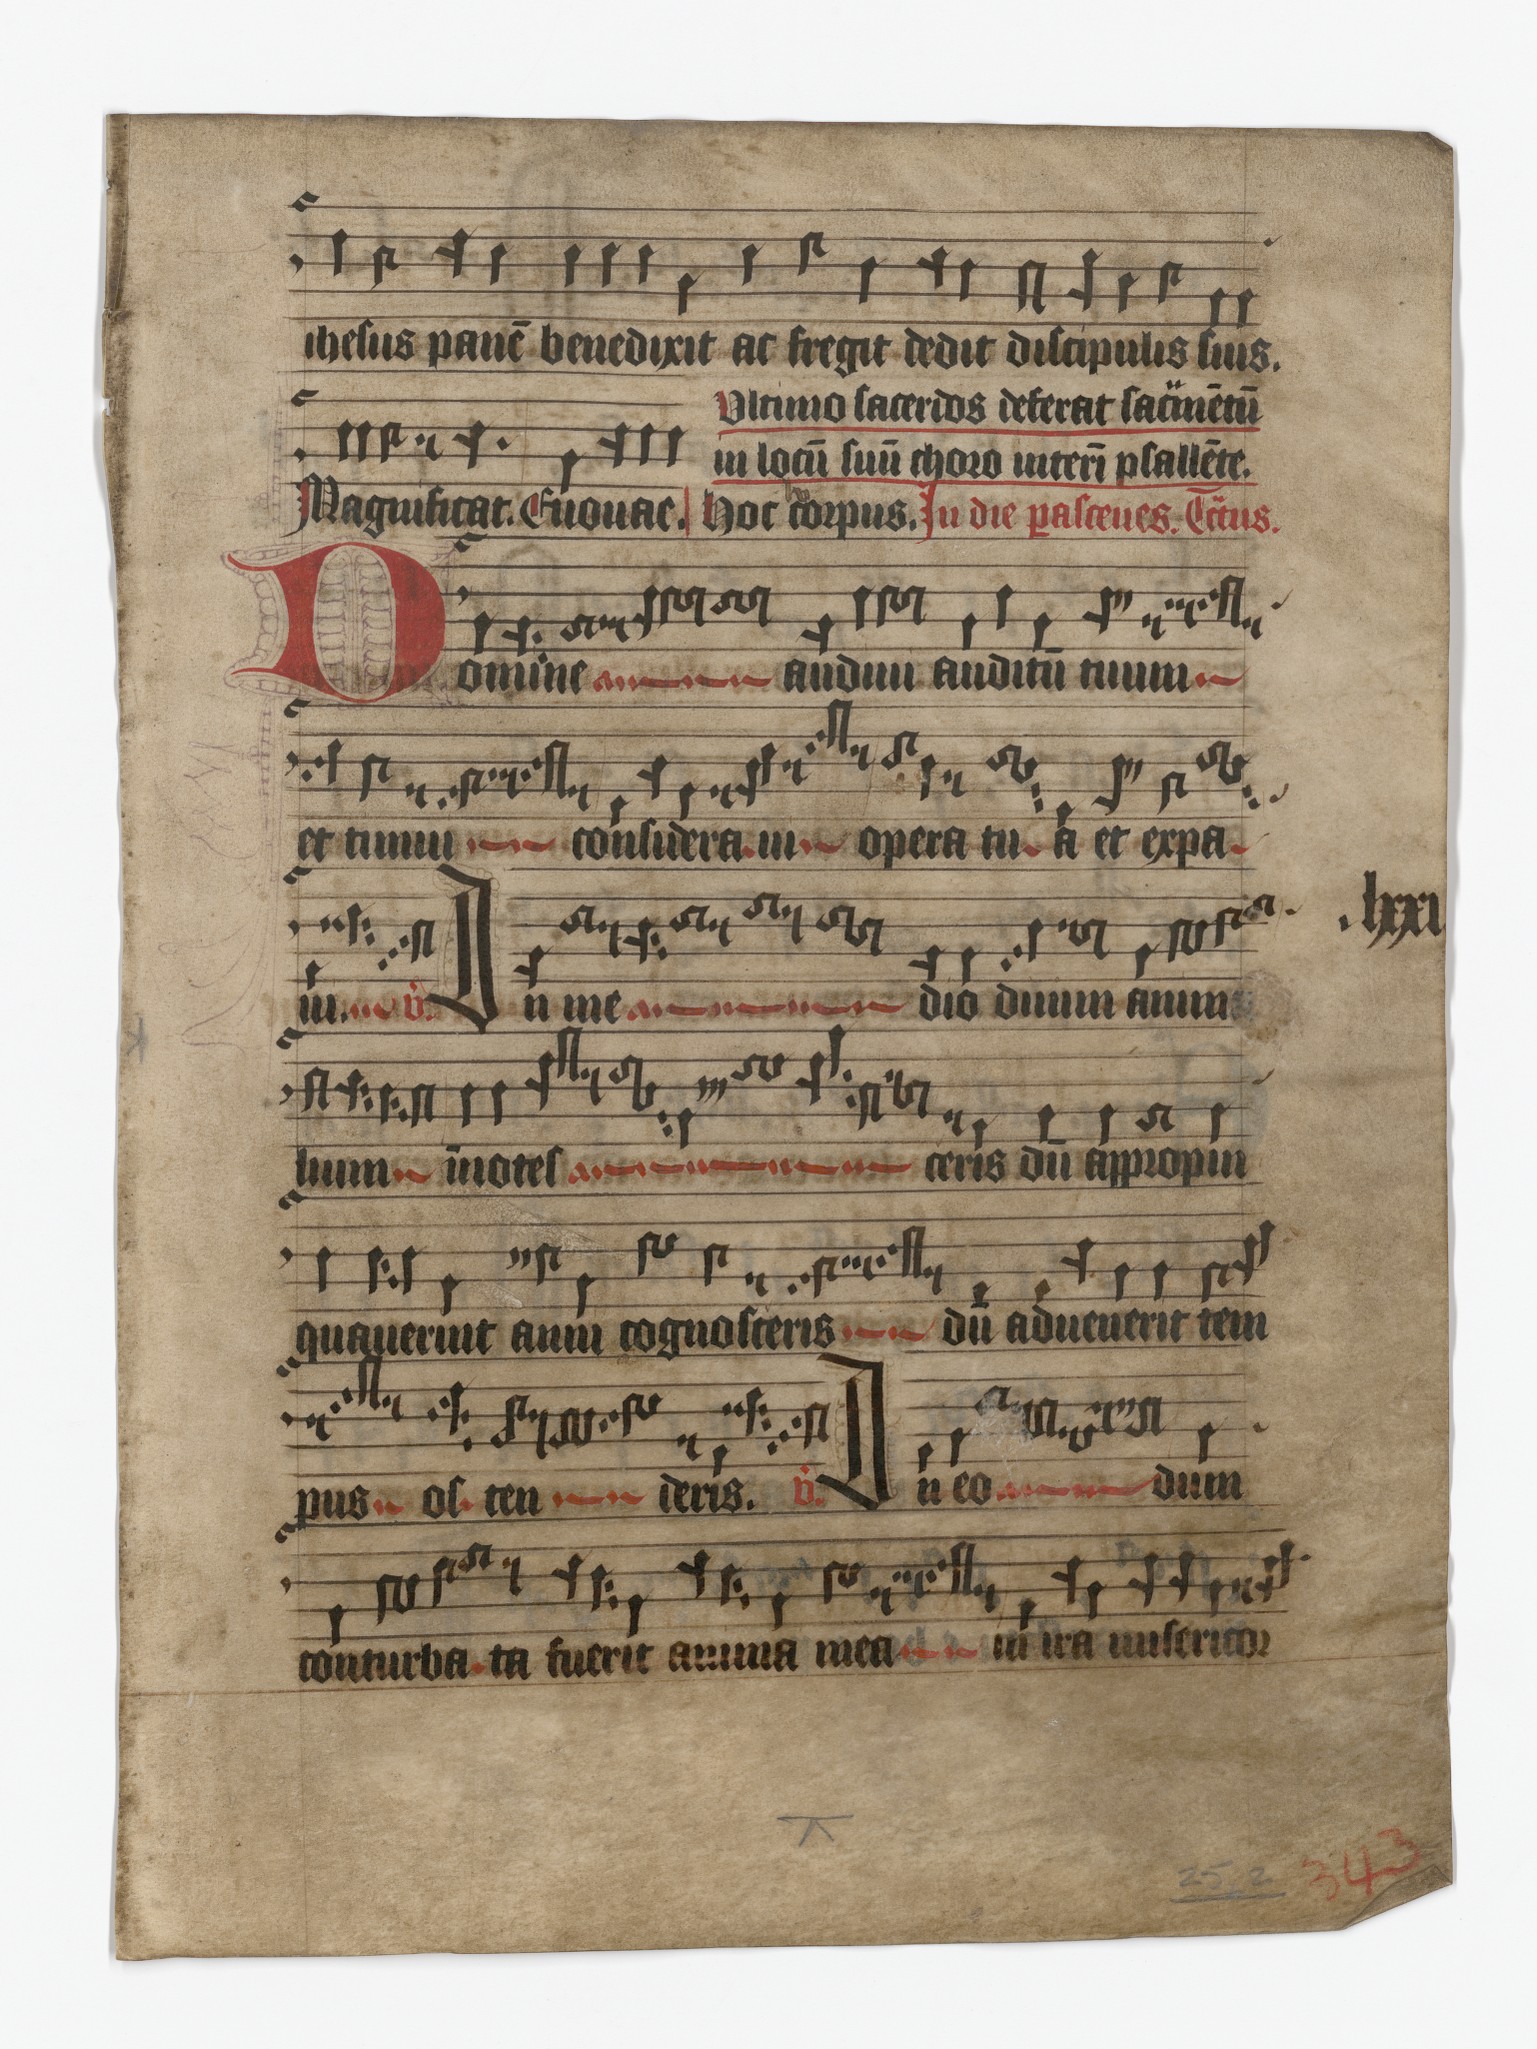 ihesus panē benedixit ac fregit dedit discipulis suis.
Ultimo sacerdos deferat sac̄mētū
in locū suū choro interī psallēte.
Magnificat. Euouae. Hoc corpus. In die pasceues. Tc̄tus.
Domine audiui auditū tuum
et timui considera ui opera tu a et expa
ui. v̇. In me dio duum anima
lium īnotes ceris dū appropin
quauerint anni cognosceris dū aduenerit tem
pus os ten deris. v̇. In eo dum
conturba ta fuerit anima mea in ira misericor
.lxxi
25.2
343